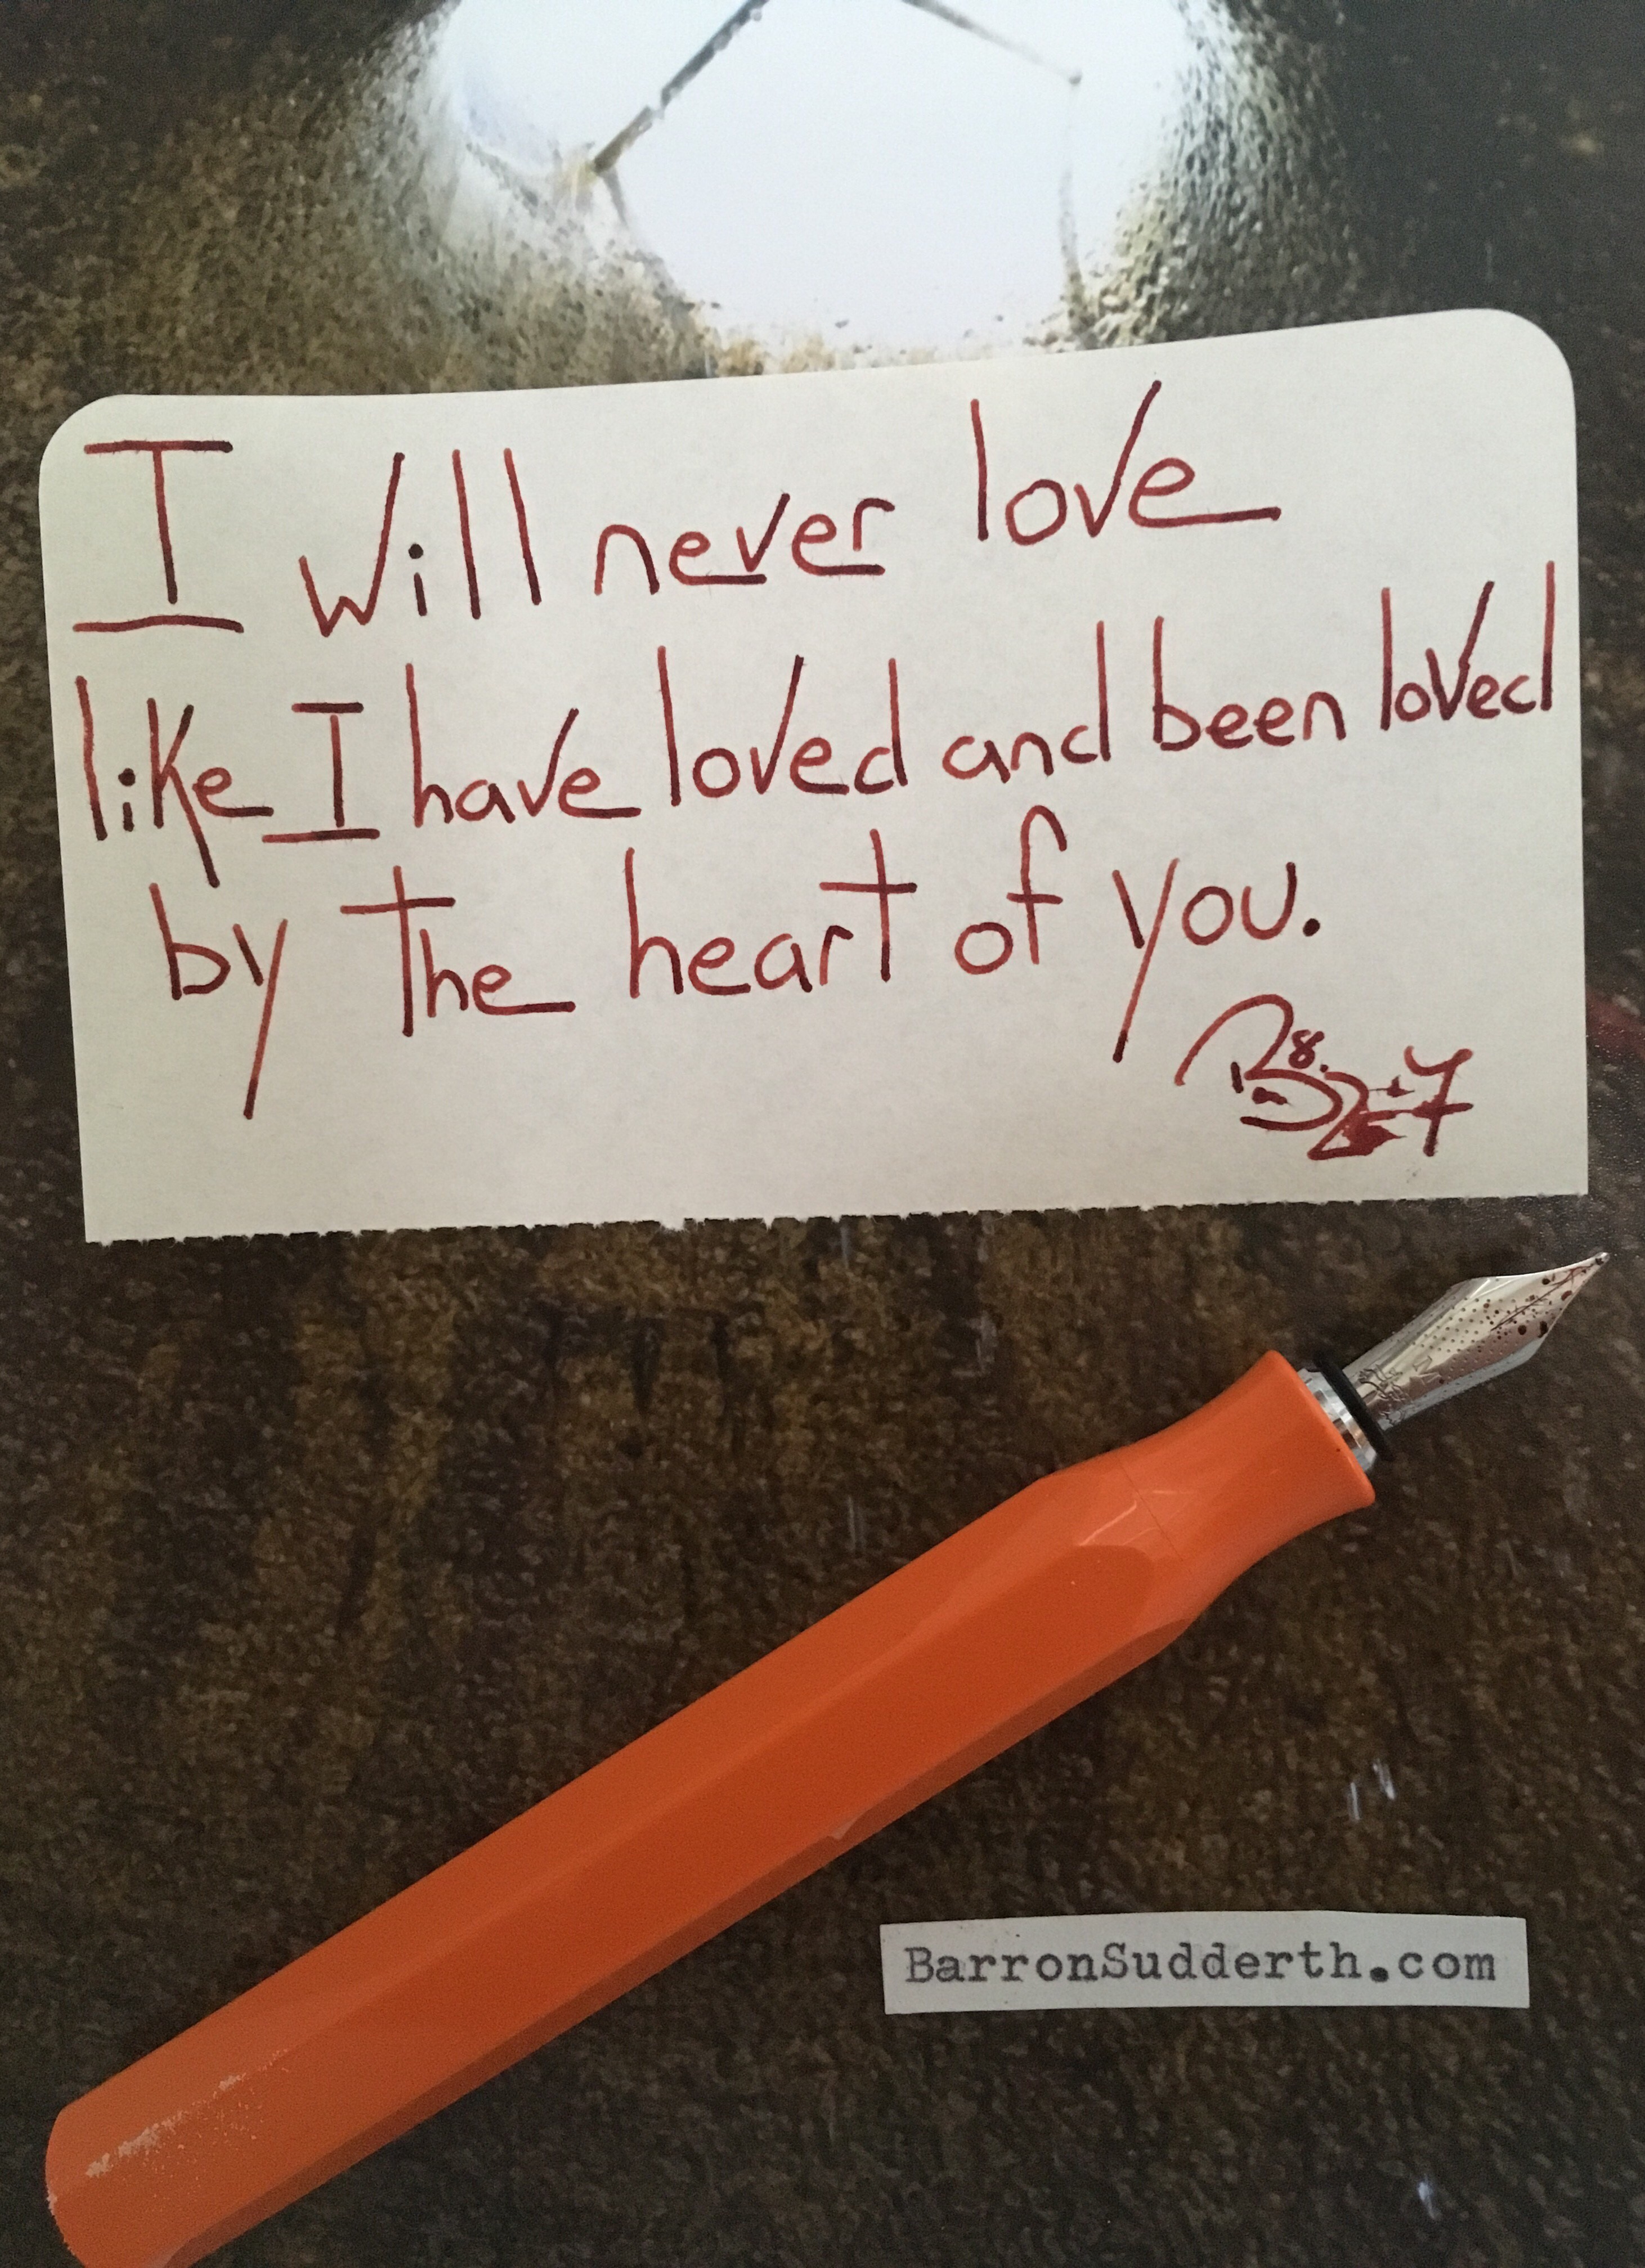 I will never love
like I have loved and been loved
by the heart of you.
BarronSudderth.com